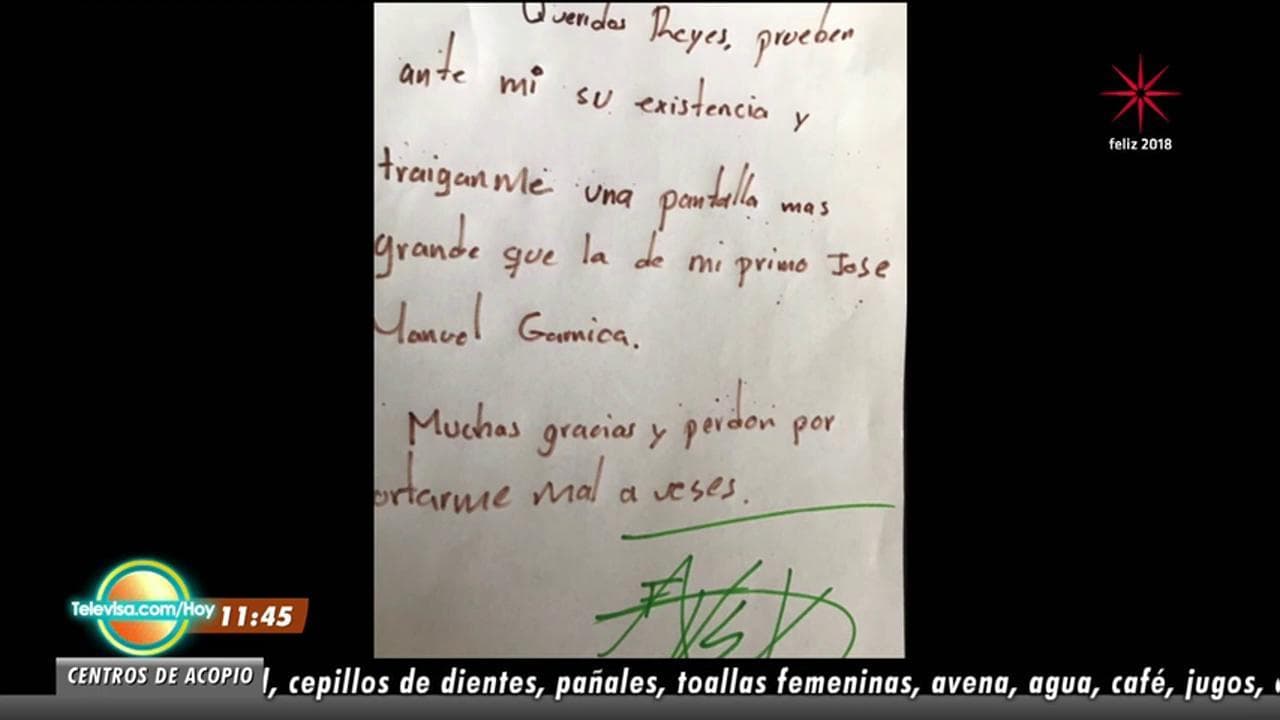 Queridos Reyes, prueben
ante mi su existencia y
traiganme una pantalla mas
grande que la de mi primo Jose
Manuel Garnica.
Muchas gracias y perdon por
ortarme mal a veses.
feliz 2018
Televisa.com/Hoy
11:45
CENTROS DE ACOPIO
, cepillos de dientes, pañales, toallas femeninas, avena, agua, café, jugos,